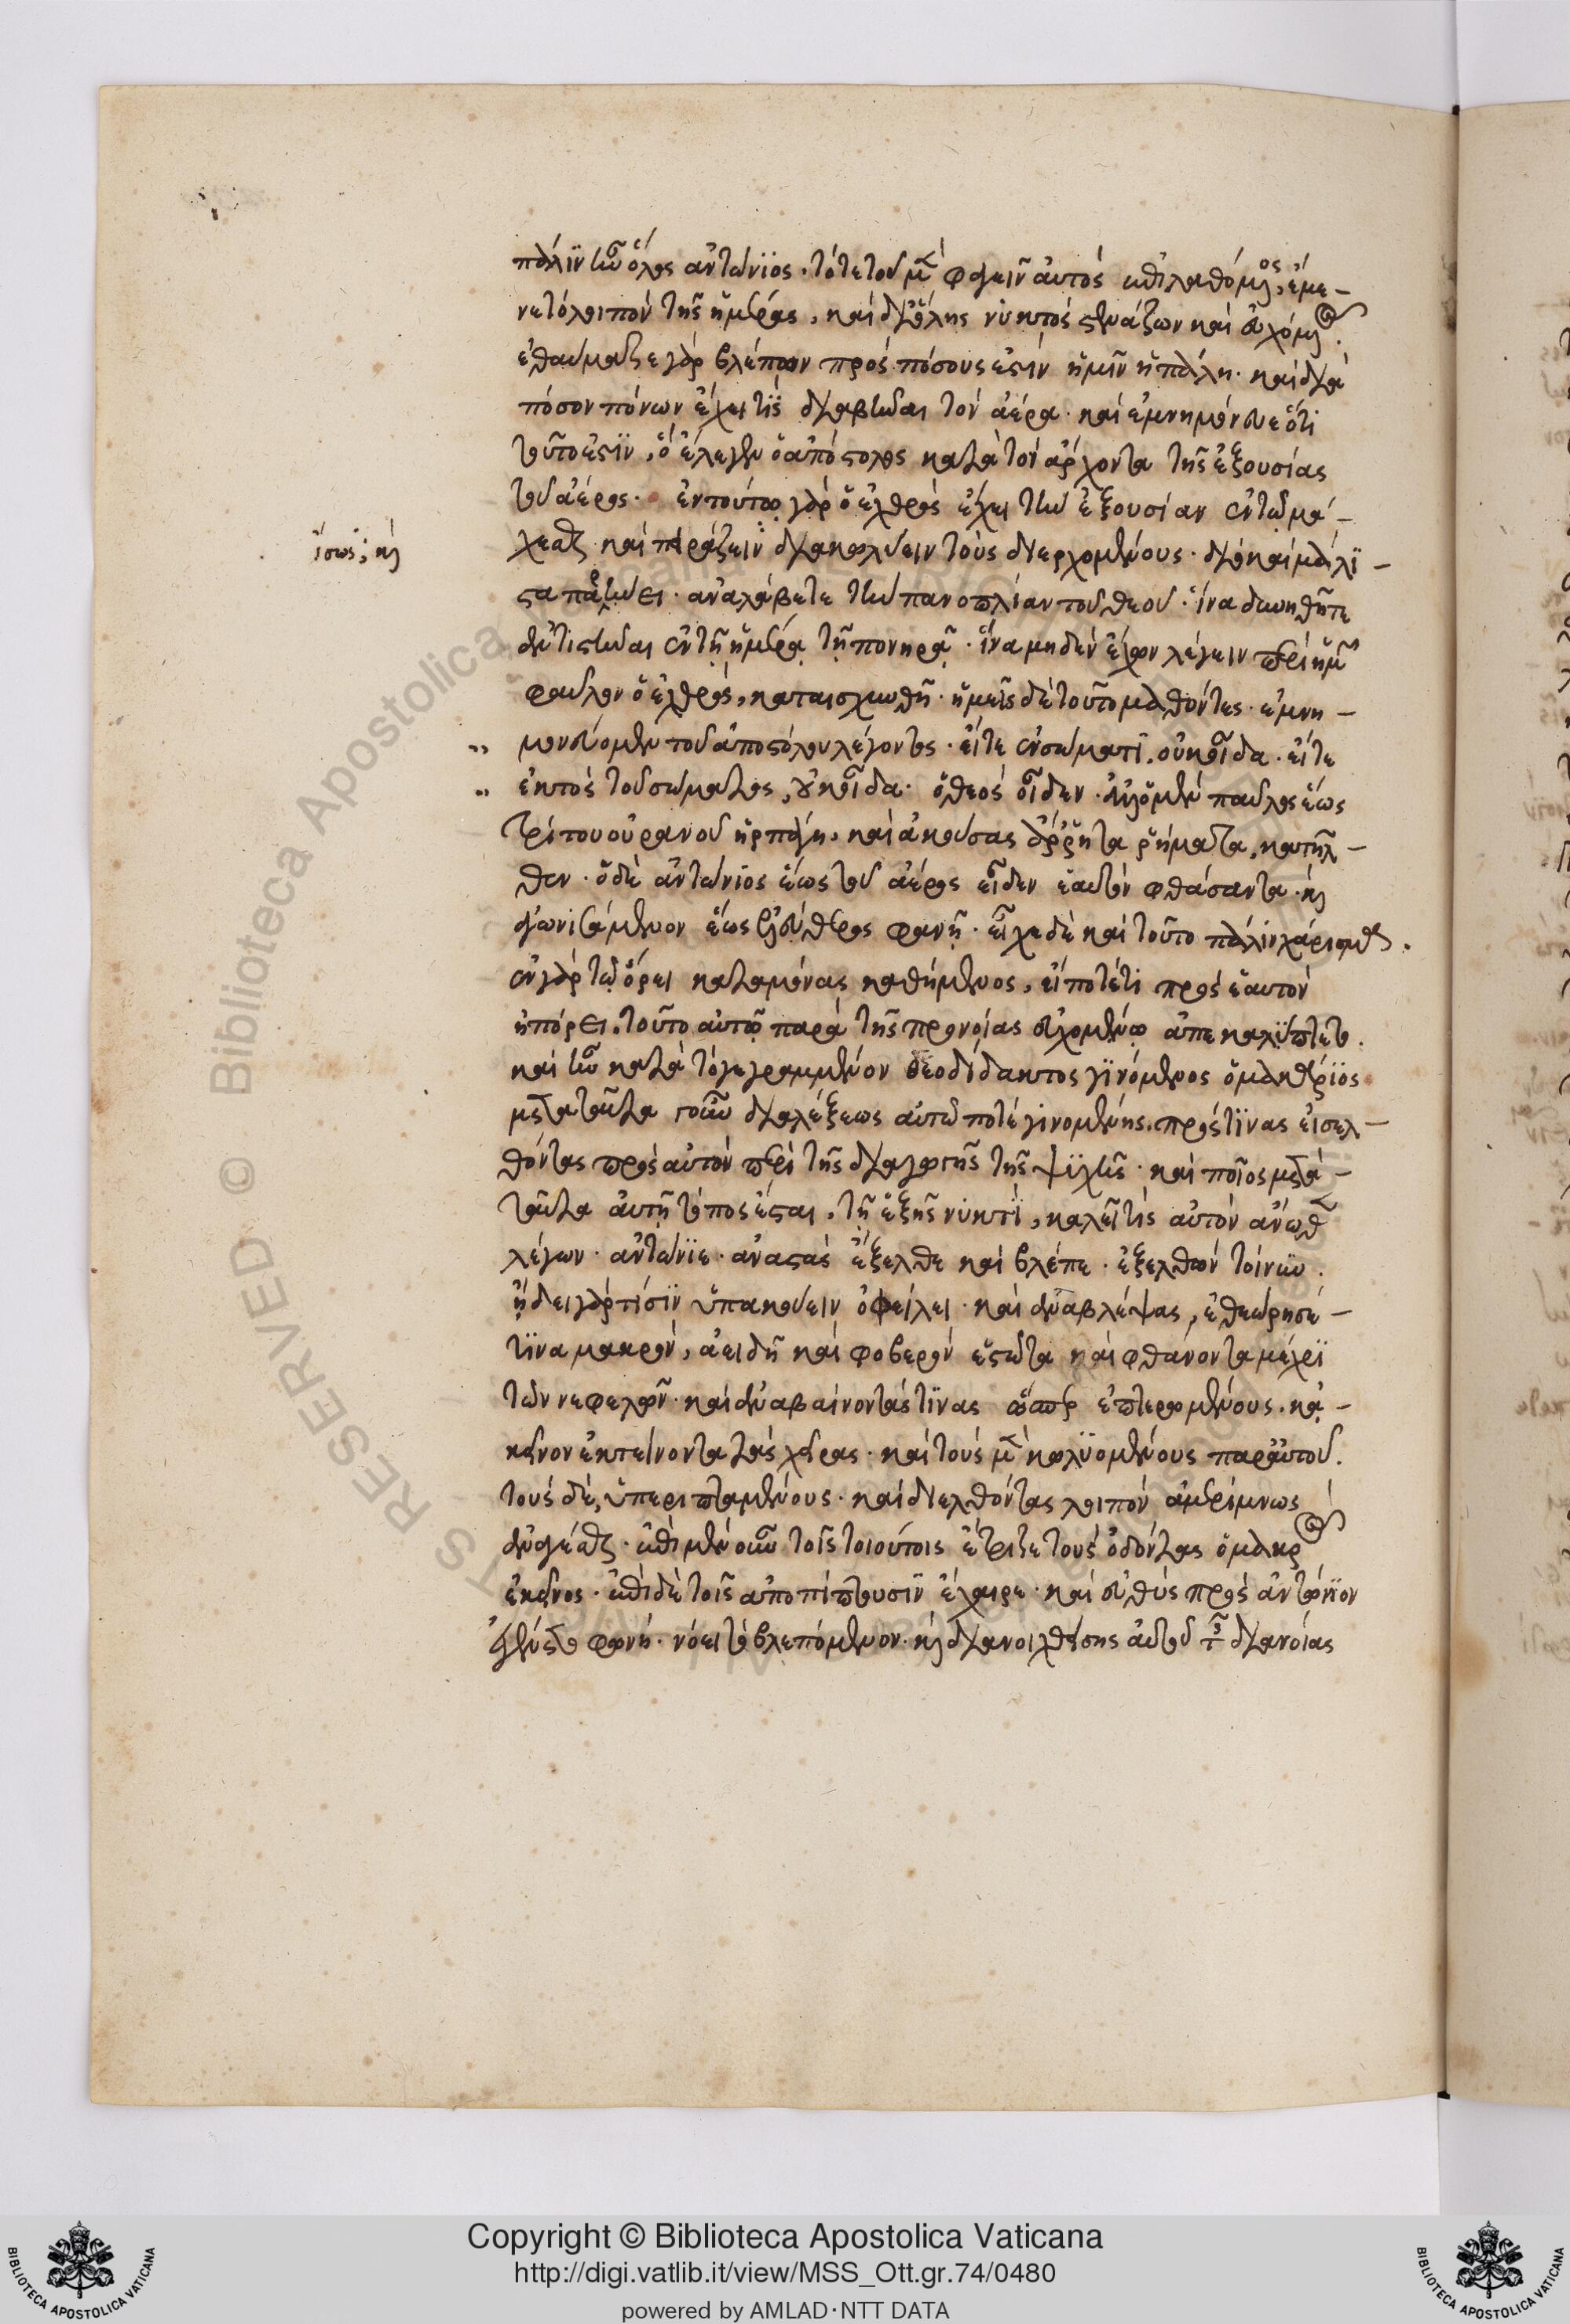 πάλιν ἦν ὅλος ἀντώνϊος. τότε τοῦ μὲν φαγεῖν αὐτὸς ἐπιλαθόμενος, ἔμε-
νε τὸ λοιπὸν τῆς ἡμέρας, καὶ δι' ὅλης νυκτὸς στενάζων καὶ εὐχόμενος.
ἐθαύμαζε γὰρ βλέπων πρὸς πόσους ἐστὶν ἡμῖν ἡ πάλη. καὶ διὰ
πόσων πόνων ἔχει τὶς διαβῆναι τὸν ἀέρα. καὶ ἐμνημόνευε ὅτι
τοῦτο ἐστϊν, ὃ ἔλεγεν ὁ ἀπόστολος κατὰ τὸν ἄρχοντα τῆς ἐξουσίας
τοῦ ἀέρος. ἐν τούτῳ γὰρ ὁ ἐχθρὸς ἔχει τὴν ἐξουσίαν ἐν τῷ μά-
χεσθαι καὶ πειράζειν διακωλύειν τοὺς διερχομένους. διὸ καὶ μάλϊ-
ἴσως, καὶ
στα παρῄνει. ἀναλάβετε τὴν πανοπλίαν τοῦ θεοῦ. ἵνα δυνηθῆτε
ἀντιστῆναι ἐν τῇ ἡμέρᾳ τῇ πονηρᾷ. ἵνα μηδὲν ἔχων λέγειν περὶ ἡμῶν
φαῦλον ὁ ἐχθρὸς, καταισχυνθῇ. ἡμεῖς δὲ τοῦτο μαθόντες. ἐμνη-
μονεύομεν τοῦ ἀποστόλου λέγοντος. εἴτε ἐν σώματϊ, οὐκ οἶδα. εἴτε
ἐκτὸς τοῦ σώματος, οὐκ οἶδα. ὁ θεὸς οἶδεν. ἀλλ' ὁ μὲν παῦλος ἕως
τρίτου οὐρανοῦ ἡρπάγη, καὶ ἀκούσας ἄρρητα ῥήματα, κατῆλ-
θεν. ὁ δὲ ἀντώνϊος ἕως τοῦ ἀέρος εἶδεν ἑαυτὸν φθάσαντα. καὶ
ἀγωνισάμενον ἕως ἐλεύθερος φανῇ. εἶχε δὲ καὶ τοῦτο πάλιν χάρισμα.
ἐν γὰρ τῷ ὄρει καταμόνας καθήμενος, εἴ ποτέ τι πρὸς ἑαυτὸν
ἠπόρει, τοῦτο αὐτῷ παρὰ τῆς προνοίας εὐχομένῳ ἀπεκαλύπτετο.
καὶ ἦν κατὰ τὸ γεγραμμένον θεοδίδακτος γϊνόμενος ὁ μακάρϊος
μετὰ ταῦτα γοῦν διαλέξεως αὐτῷ ποτὲ γινομένης πρός τϊνας εἰσελ-
θόντας πρὸς αὐτὸν περὶ τῆς διαγωγῆς τῆς ψϋχῆς. καὶ ποῖος μετὰ-
ταῦτα αὐτῇ τόπος ἔσται, τῇ ἑξῆς νυκτϊ, καλεῖ τὶς αὐτὸν ἄνωθεν
λέγων. ἀντώνϊε. ἀναστὰς ἔξελθε καὶ βλέπε. ἐξελθὼν τοίνυν.
ᾔδει γὰρ τίσϊν ὑπακούειν ὀφείλει. καὶ ἀναβλέψας, ἐθεώρησέ-
τϊνα μακρὸν, ἀειδῆ καὶ φοβερὸν ἑστῶτα καὶ φθάνοντα μέχρϊ
τῶν νεφελῶν. καὶ ἀναβαίνοντάς τϊνας ὥσπερ ἐπτερωμένους. κἀ-
κεῖνον ἐκτείνοντα τὰς χεῖρας. καὶ τοὺς μὲν κωλϋομένους παρ' αὐτοῦ.
τοὺς δὲ, ὑπεριπταμένους. καὶ διελθόντας λοιπὸν ἀμερίμνως
ἀνάγεσθαι. ἐπὶ μὲν οὖν τοῖς τοιούτοις ἔτριζε τοὺς ὀδόντας ὁ μακρὸς
ἐκεῖνος. ἐπὶ δὲ τοῖς ἀποπίπτουσϊν ἔχαιρε. καὶ εὐθὺς πρὸς ἀντώνϊον
ἐγένετο φωνή. νόει τὸ βλεπόμενον. καὶ διανοιχθείσης αὐτοῦ τῆς διανοίας
© Biblioteca Apostolica Vaticana
Copyright © Biblioteca Apostolica Vaticana
http://digi.vatlib.it/view/MSS_Ott.gr.74/0480
powered by AMLAD·NTT DATA
BIBLIOTECA APOSTOLICA VATICANA
BIBLIOTECA APOSTOLICA VATICANA